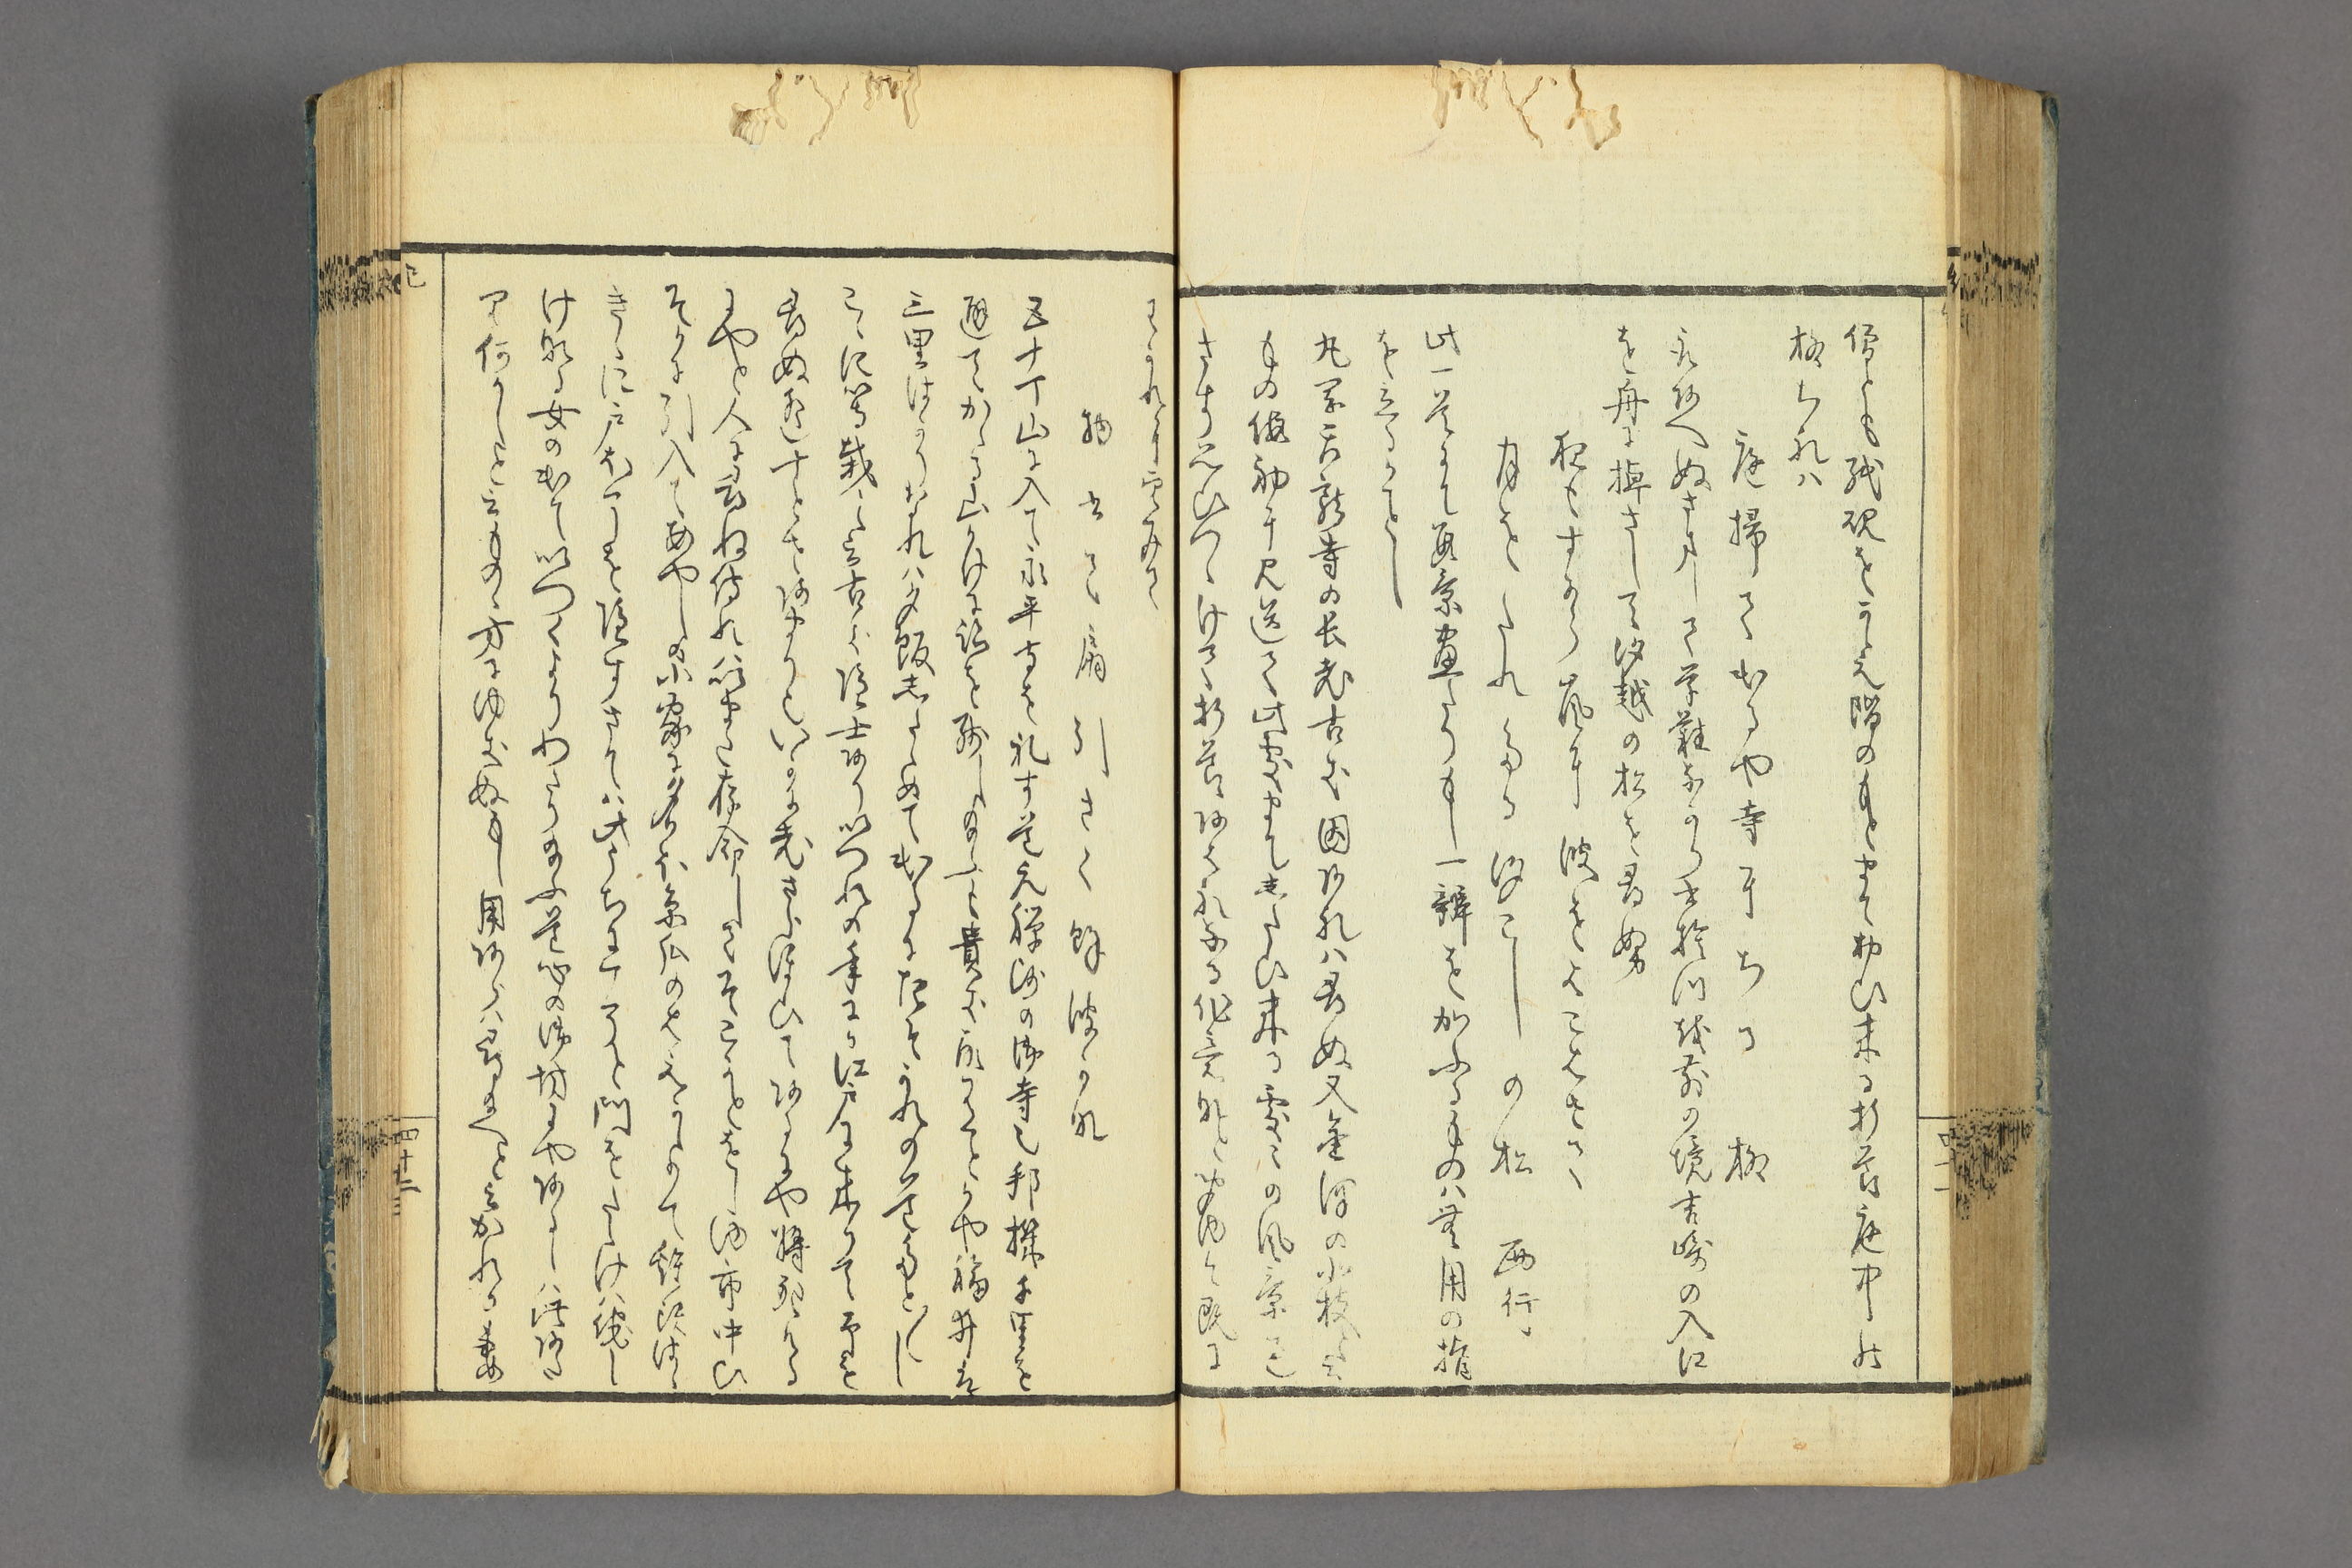 僧とも紙硯をかゝえ階のもとまて追ひ来る折節庭中の
柳ちれハ
庭掃て出るや寺にちる柳
とりあへぬさまして草鞋なから書捨つ越前の境吉崎の入江
を舟に棹さして汐越の松を尋ぬ
夜もすから嵐に波をはこはせて
月をたれたる汐こしの松　西行
此一首にて数景尽たりもし一辨を加ふるものハ無用の指
を立るかことし
丸岡天龍寺の長老古き因あれハ尋ぬ又金沢の北枝と云
もの仮初に見送て此処まてしたひ来る処〻の風景過
さす思ひつゝけて折節あはれなる作意なと聞ゆ今既に
わかれに望みて
物書て扇引さく余波かな
五十丁山に入て永平寺を礼す道元禅師の御寺也邦機千里を
避てかゝる山かけに跡を残し給ふも貴き故有とかや福井は
三里はかりなれハ夕飯したゝめて出るにたそかれの道たと〳〵し
こゝに等栽と云古き隠士ありいつれの年にか江戸に来りて予を
尋ぬ遥十とせあまり也いかに老さらほひてあるにや将死ける
にやと人に尋ね侍れハいまた存命してそこ〳〵とをしゆ市中ひ
そかに引入てあやしの小家に夕㒵糸瓜のはえかゝりて鶏頭はゝ
きゝに戸ほそを隠すさてハ此うちにこそと門をたゝけハ侘し
け成る女の出ていつくよりわたり給ふ道心の御坊にやあるしハ此あた
り何かしと云ものゝ方に行ぬもし用あらハ尋給へと云かれか妻
四十一
四十二三